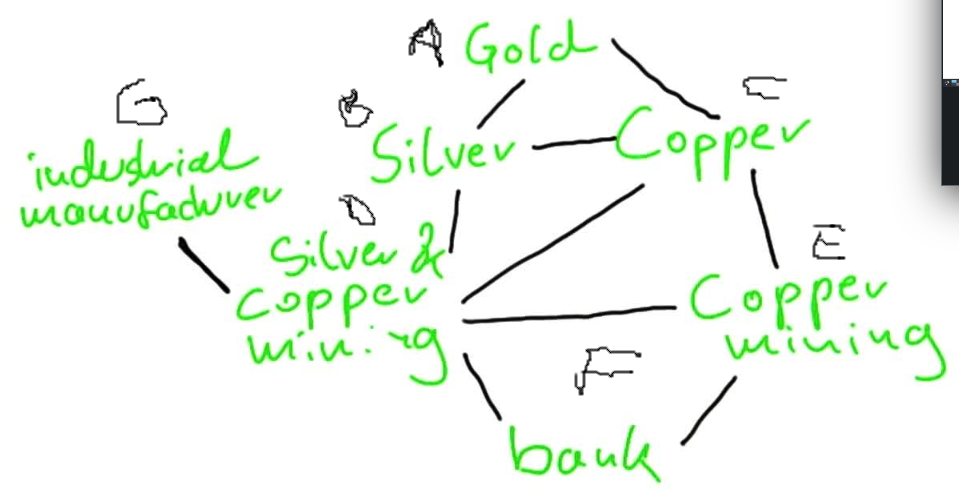 A Gold
G B C
Silver Copper
industrial
manufacturer
D
Silver &
Copper
mining
E
Copper
mining
F
bank